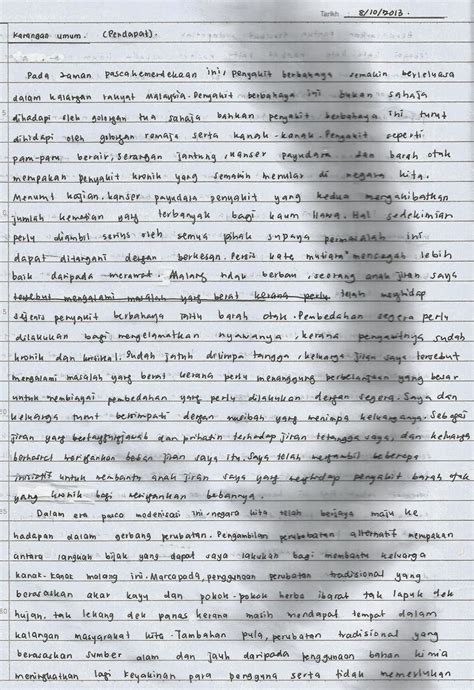 Tarikh 8/10/2013.
Karangan umum. (Pendapat).
Pada zaman pascakemerdekaan ini, penyakit berbahaya semakin berleluasa
dalam kalangan rakyat Malaysia. Penyakit berbahaya ini bukan sahaja
dihadapi oleh golongan tua sahaja bahkan penyakit berbahaya ini turut
dihidapi oleh golongan remaja serta kanak-kanak. Penyakit seperti
paru-paru berair, serangan jantung, kanser payudara dan barah otak
merupakan penyakit kronik yang semakin menular di negara kita.
Menurut kajian, kanser payudara penyakit yang kedua mengakibatkan
jumlah kematian yang terbanyak bagi kaum Hawa. Hal sedekimian
perlu diambil serius oleh semua pihak supaya permasalah ini
dapat ditangani dengan berkesan. Persis kata mutiara mencegah lebih
baik daripada merawat. Malang tidak berbau, seorang anak jiran saya
tersebut mengalami masalah yang berat kerana perlu telah menghidap
sejenis penyakit berbahaya iaitu barah otak. Pembedahan segera perlu
dilakukan bagi mengelamatkan nyawanya, kerana penyakitnya sudah
kronik dan kritikal. Sudah jatuh ditimpa tangga, keluarga jiran saya tersebut
mengalami masalah yang berat kerana perlu menanggung perbelanjaan yang besar
untuk membiayai pembedahan yang perlu dilakukan dengan segera. Saya dan
keluarga turut bersimpati dengan musibah yang menimpa keluarganya. Sebagai
jiran yang bertanggungjawab dan prihatin terhadap jiran tetangga saya, dan keluarga
berhasrat meringankan beban jiran saya itu. Saya telah mengambil beberapa
inisiatif untuk membantu anak jiran saya yang menghidap penyakit barah otak
yang kronik bagi meringankan bebannya.
Dalam era pasca modenisasi ini, negara kita telah berjaya maju ke
hadapan dalam gerbang perubatan. Pengambilan perubatan alternatif merupakan
antara langkah bijak yang dapat saya lakukan bagi membantu keluarga
kanak-kanak malang ini. Marcapada, penggunaan perubatan tradisional yang
berasaskan akar kayu dan pokok-pokok herba ibarat tak lapuk dek
hujan, tak lekang dek panas kerana masih mendapat tempat dalam
kalangan masyarakat kita. Tambahan pula, perubatan tradisional yang
berasaskan sumber alam dan jauh daripada penggunaan bahan kimia
meningkatkan lagi keyakinan para pengguna serta tidak memerlukan